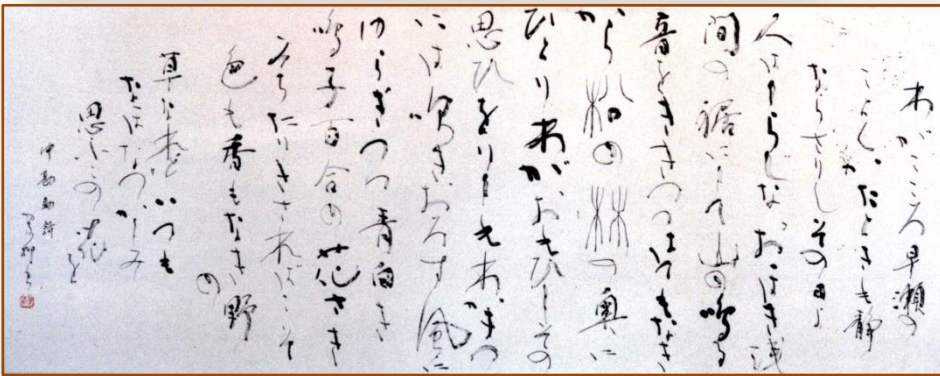 わがこころ早瀬の
ごとくかたときも静
ならざりしその日よ
人はしらじなおほき浅
間の裾にして山の鳴る
音をききつつはてもなき
から松の林の奥に
ひとりわがおもひしその
思ひをりしもわがまへ
には吹きおろす風に
ゆらぎつつ青白き
鳴子百合の花さき
みちたりきさればこそ
色も香もなき野の
草なれどいつも
なほなつかしみ
思ふこの花を
中勘助詩